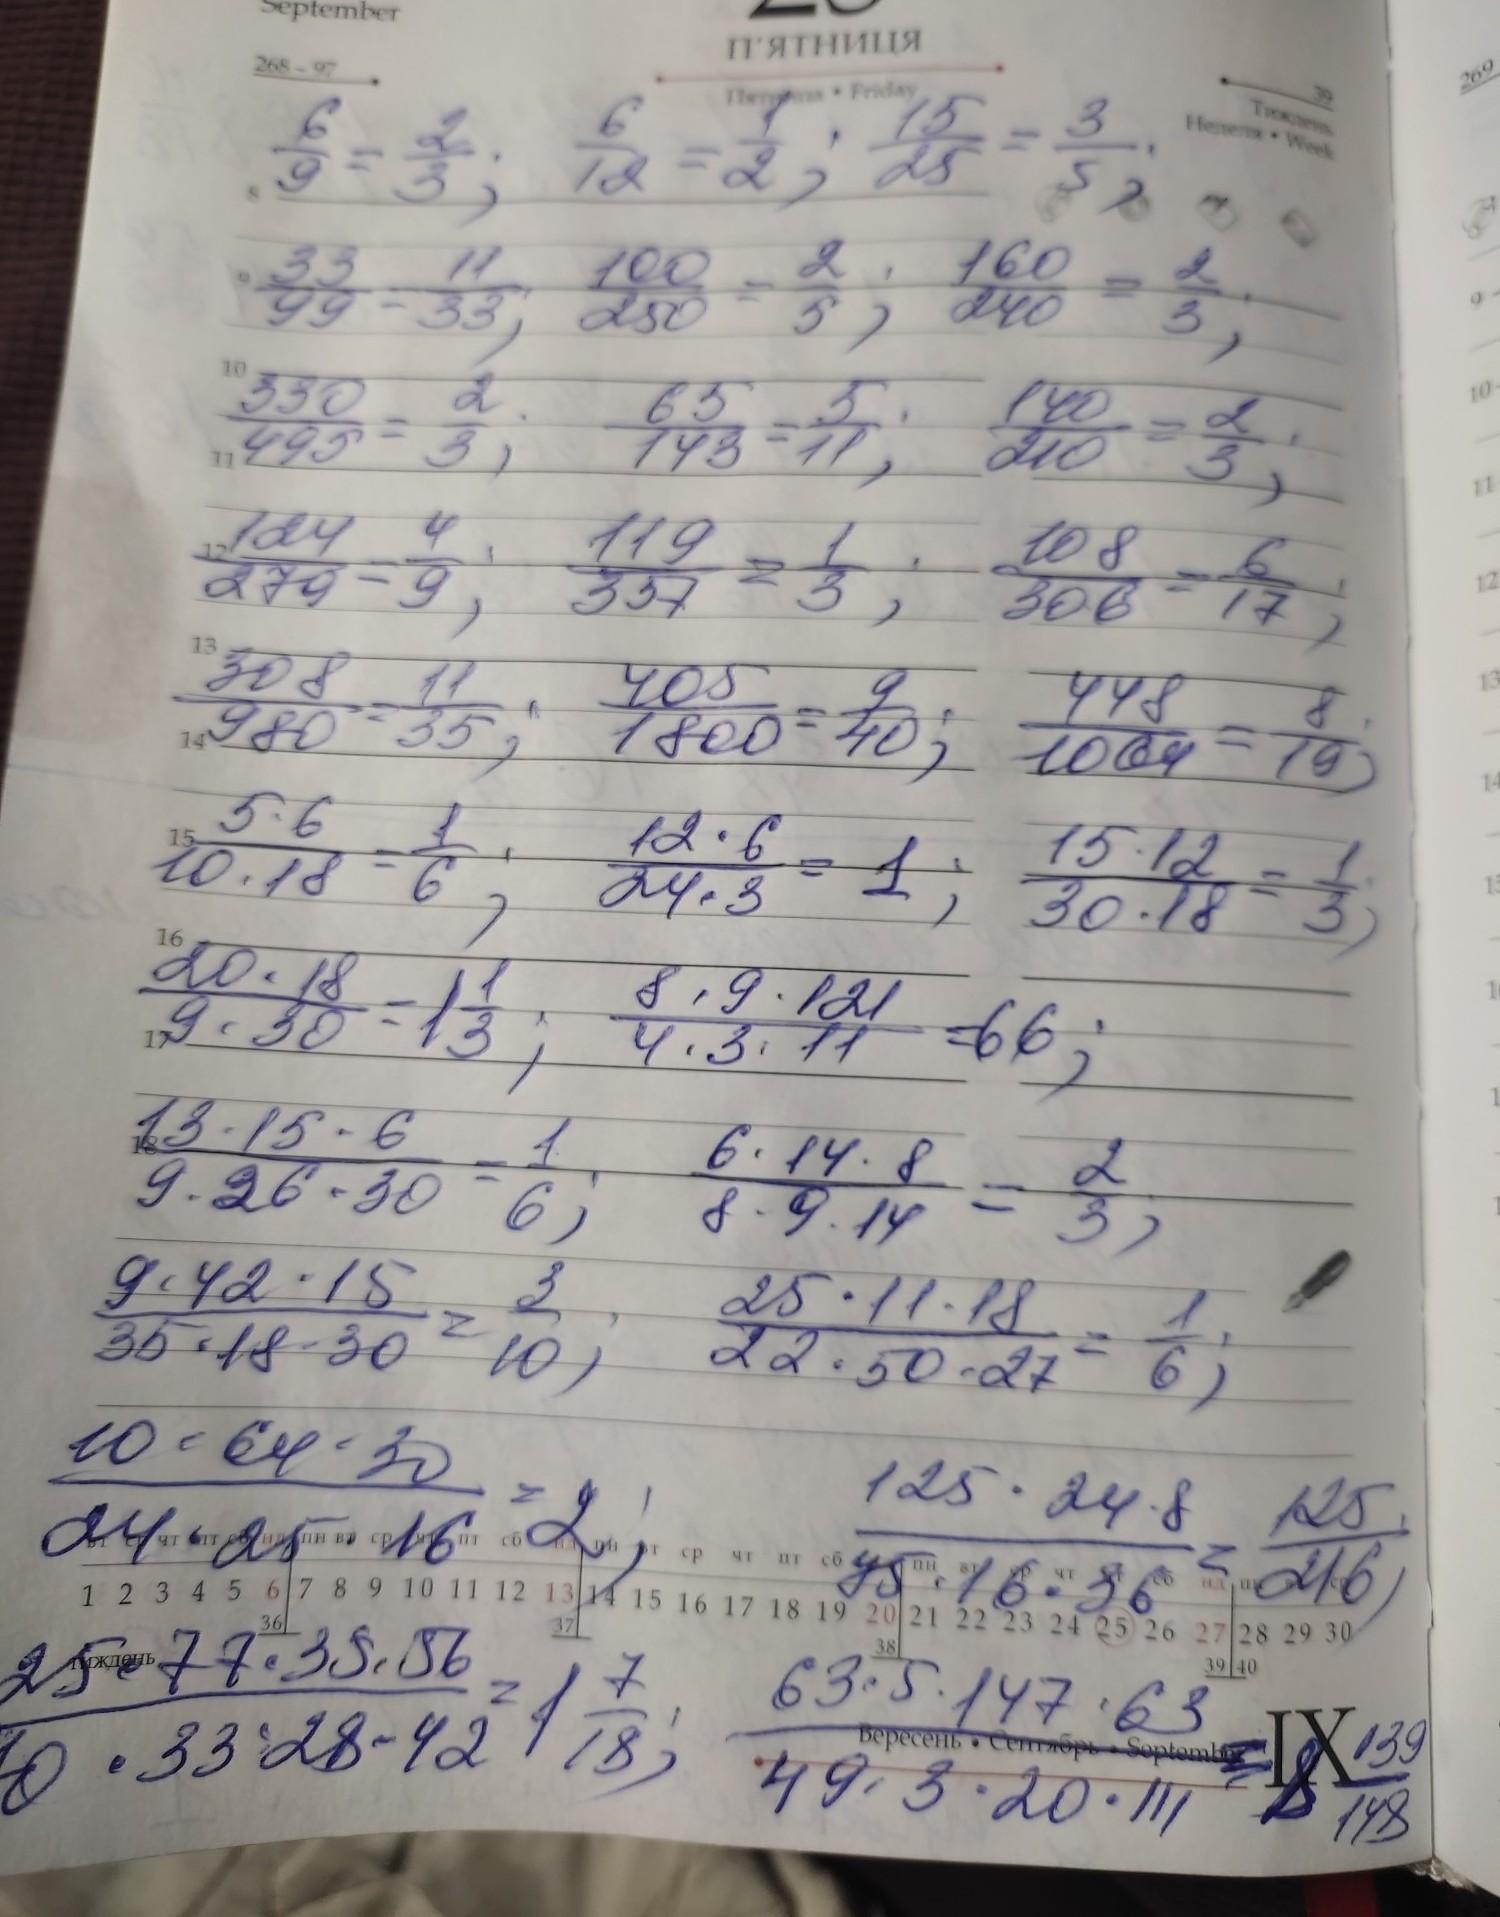 September
П'ЯТНИЦЯ
268 – 97
Пятница • Friday
39
Тиждень
Неделя • Week
269
6/9 = 2/3; 6/12 = 1/2; 15/25 = 3/5;
8
9
33/99 = 11/33; 100/250 = 2/5; 160/240 = 2/3;
10
330/495 = 2/3; 65/143 = 5/11; 140/210 = 2/3;
11
12
124/279 = 4/9; 119/357 = 1/3; 108/306 = 6/17;
13
308/980 = 11/35; 405/1800 = 9/40; 448/1064 = 8/19;
14
15
5·6/10·18 = 1/6; 12·6/24·3 = 1; 15·12/30·18 = 1/3;
16
20·18/9·30 = 1 1/3; 8·9·121/4·3·11 = 66;
17
18
13·15·6/9·26·30 = 1/6; 6·14·8/8·9·14 = 2/3;
9·42·15/35·18·30 = 3/10; 25·11·18/22·50·27 = 1/6;
10·64·30/24·25·16 = 2; 125·24·8/75·16·36 = 125/216;
вт ср чт пт сб нд пн вт ср чт пт сб нд пн вт ср чт пт сб пн вт ср чт сб нд пн
1 2 3 4 5 6 7 8 9 10 11 12 13 14 15 16 17 18 19 20 21 22 23 24 25 26 27 28 29 30
36 37 38 39 40
Тиждень
25·77·35·56/40·33·28·42 = 1 7/18; 63·5·147·63/49·3·20·111 = 139/148
Вересень • Сентябрь • September
IX